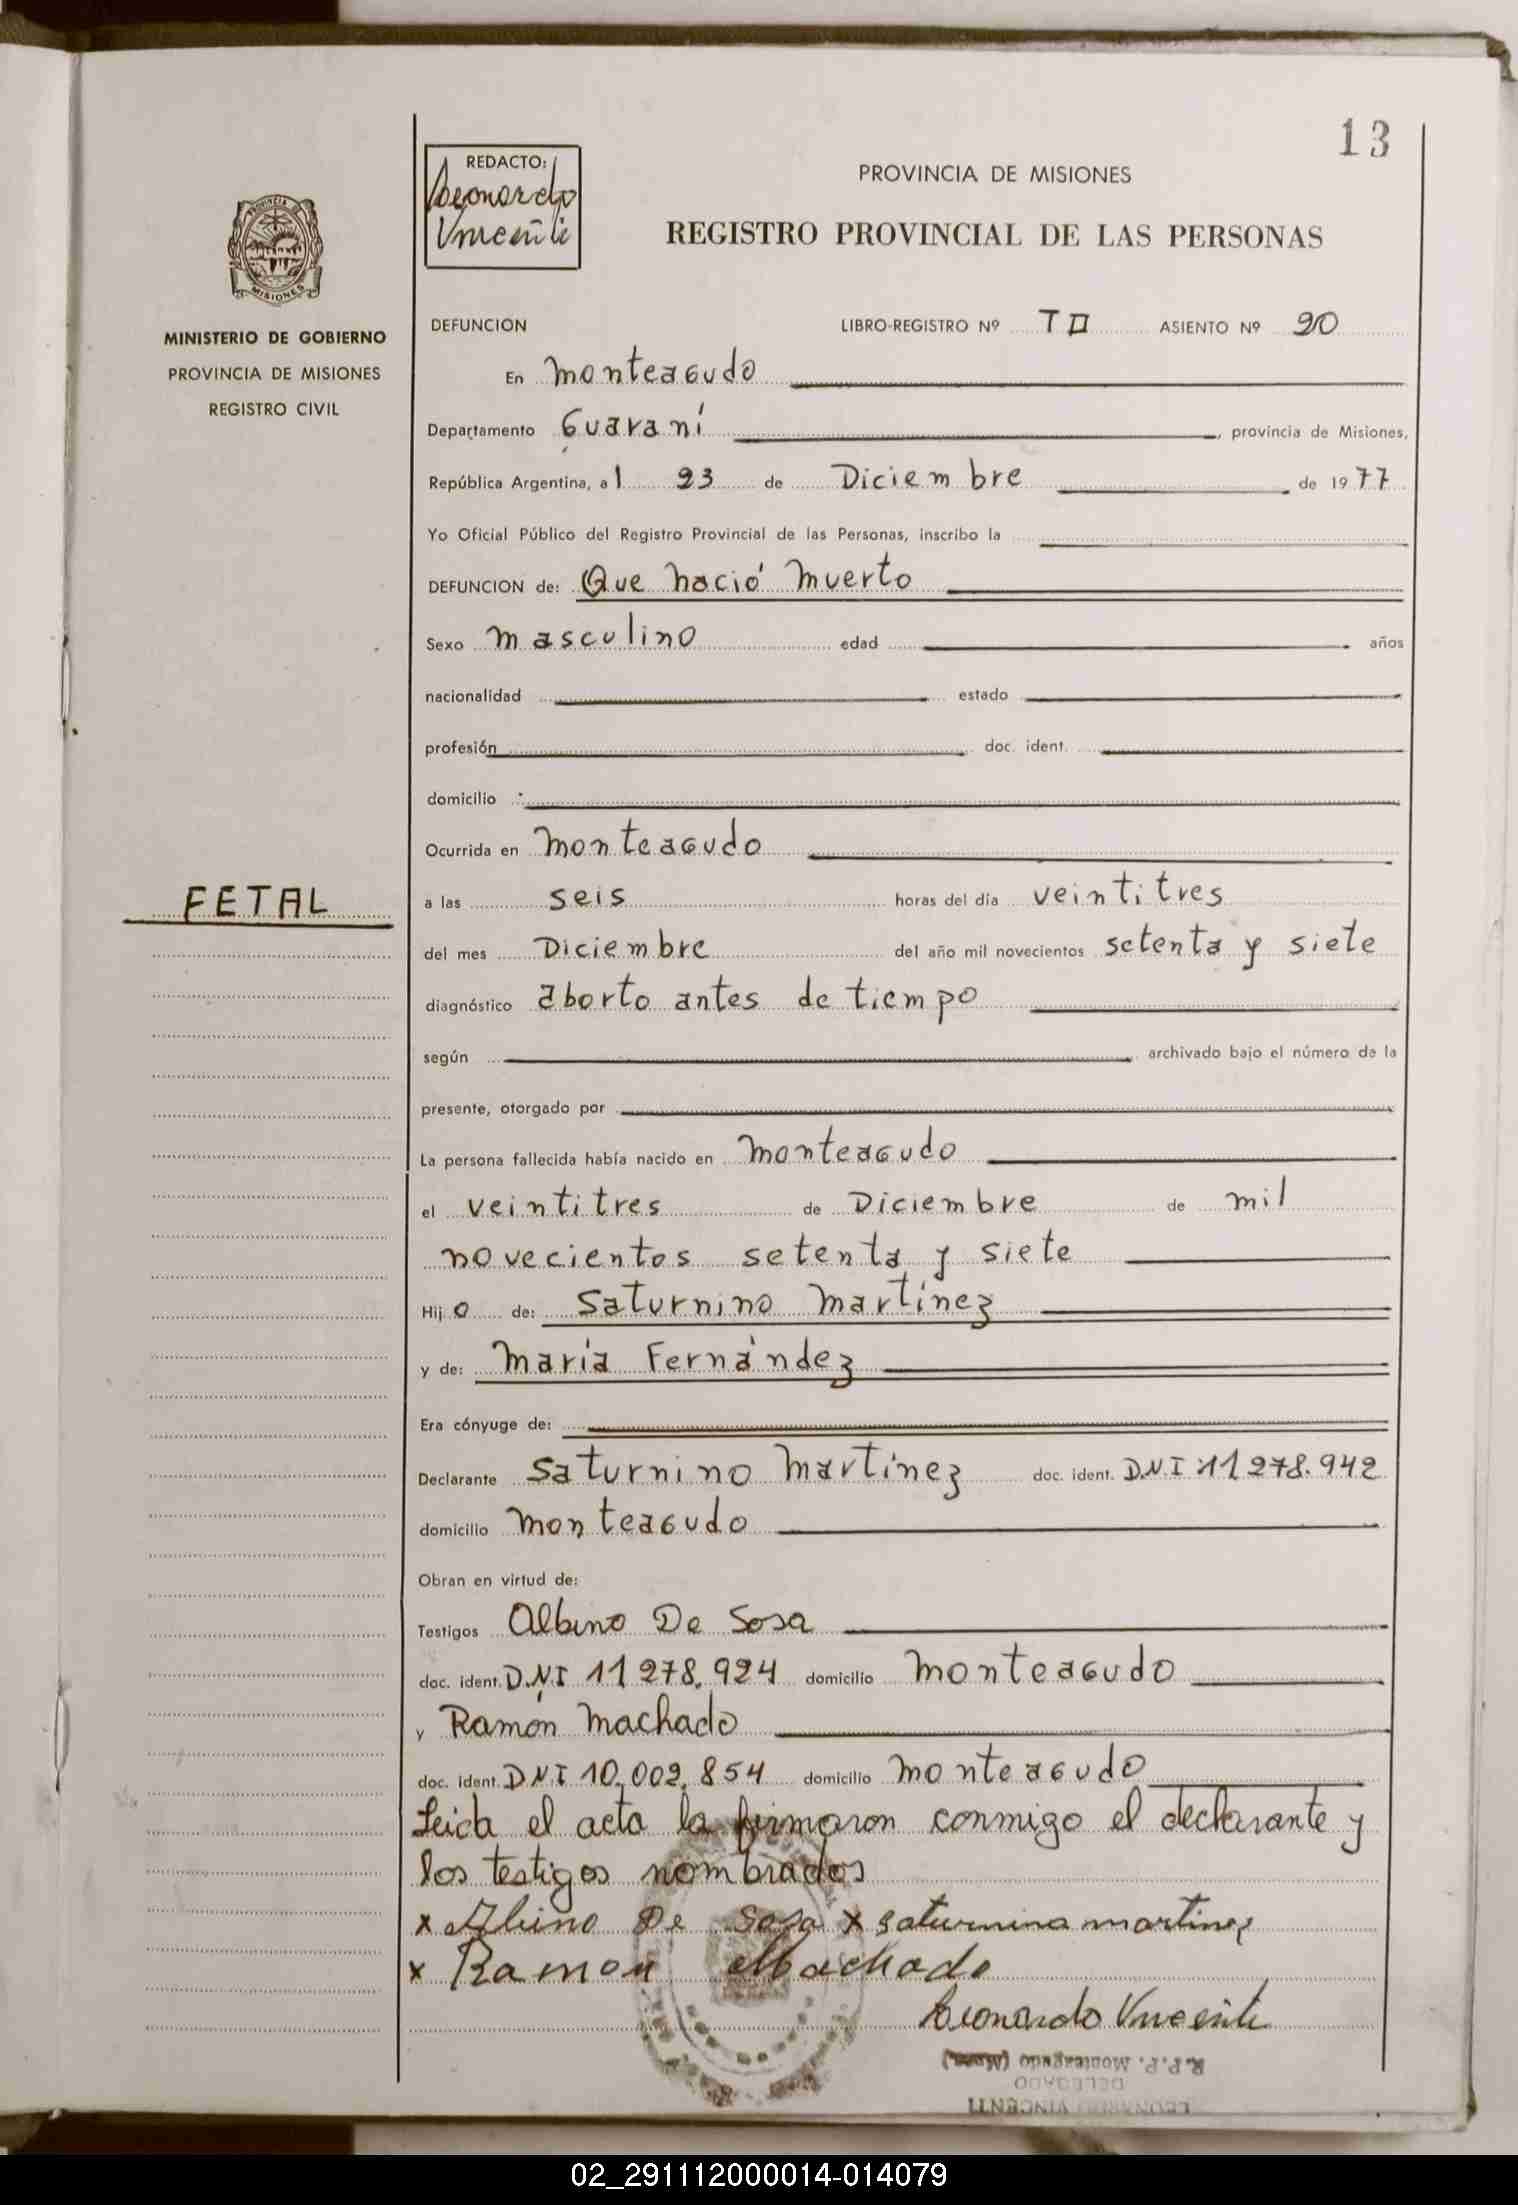 13
REDACTO:
Leonardo
Vincenti
PROVINCIA DE MISIONES
REGISTRO PROVINCIAL DE LAS PERSONAS
MISIONES
MINISTERIO DE GOBIERNO
PROVINCIA DE MISIONES
REGISTRO CIVIL
DEFUNCION LIBRO-REGISTRO Nº TD ASIENTO Nº 20
En Monteagudo
Departamento Guaraní, provincia de Misiones,
República Argentina, a l 23 de Diciembre de 1977
Yo Oficial Público del Registro Provincial de las Personas, inscribo la
DEFUNCION de: Que nació muerto
Sexo masculino edad años
nacionalidad estado
profesión doc. ident.
domicilio
Ocurrida en Monteagudo
FETAL
a las seis horas del día veintitres
del mes Diciembre del año mil novecientos setenta y siete
diagnóstico aborto antes de tiempo
según archivado bajo el número de la
presente, otorgado por
La persona fallecida había nacido en Monteagudo
el veintitres de Diciembre de mil
novecientos setenta y siete
Hijo de: Saturnino Martínez
y de: María Fernández
Era cónyuge de:
Declarante Saturnino Martínez doc. ident. D.N.I 11 278.942
domicilio Monteagudo
Obran en virtud de:
Testigos Albino De Sosa
doc. ident. D.N.I 11 278.924 domicilio Monteagudo
y Ramón Machado
doc. ident. DNI 10.002.854 domicilio Monteagudo
Leida el acta la firmaron conmigo el declarante y
los testigos nombrados
x Albino De Sosa x Saturnino martinez
x Ramon Machado
Leonardo Vincenti
R.P.P. Monteagudo (Mnes.)
DELEGADO
LEONARDO VINCENTI
02_291112000014-014079